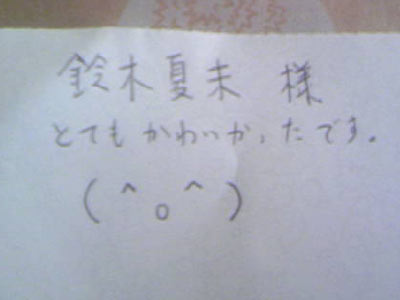 鈴木夏未 様
とてもかわいかったです。
(^o^)